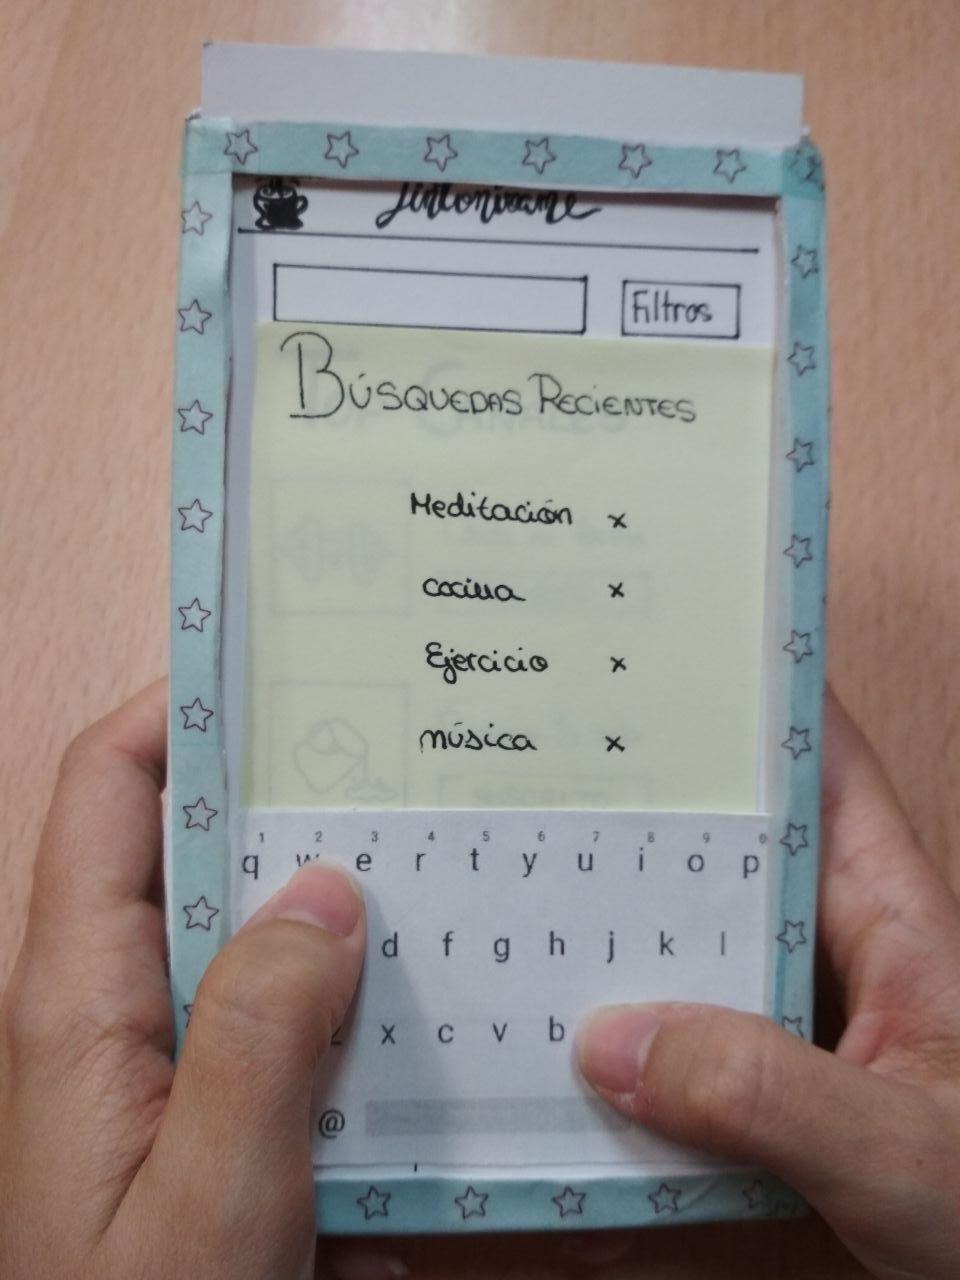 Sintonizame
Filtros
BÚSQUEDAS RECIENTES
Meditación x
cocina x
Ejercicio x
música x
1 2 3 4 5 6 7 8 9 0
q w e r t y u i o p
d f g h j k l
z x c v b
@